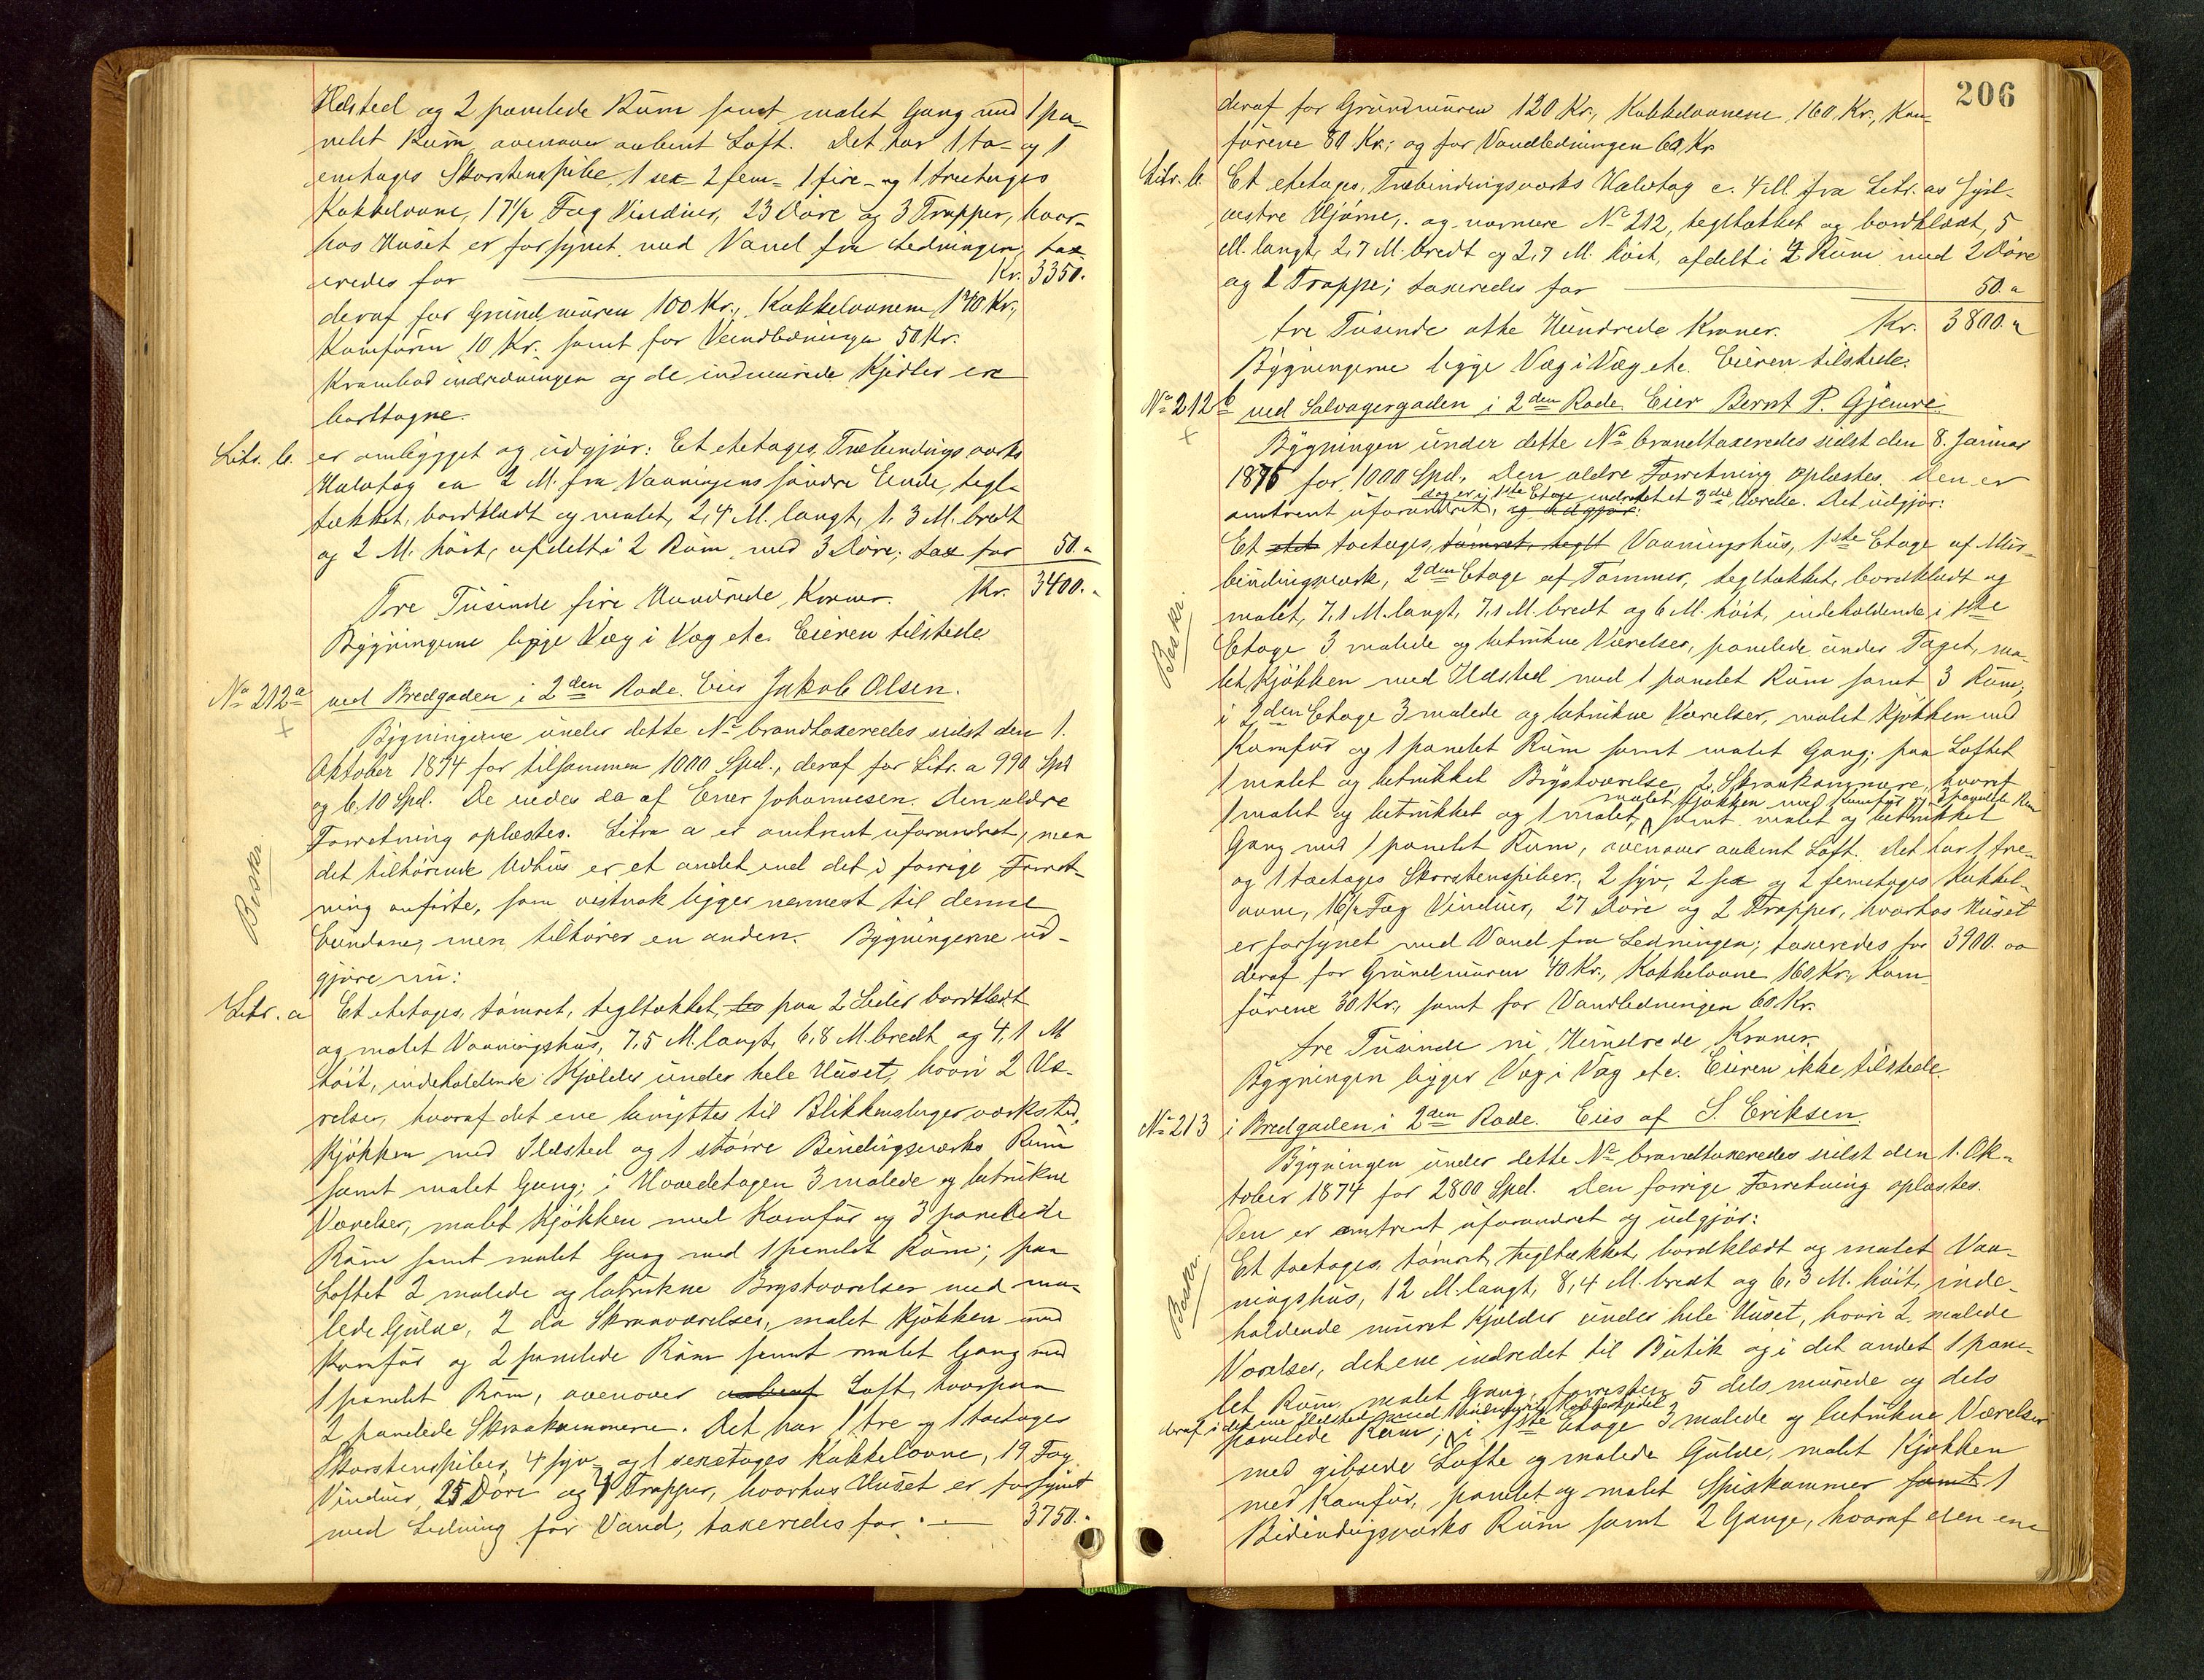 Ildsted og 2 panelede Rum samt malet Gang med 1 pa-
nelet Rum, ovenover aabent Loft. Det har 1 to- og 1
entages Skorstenspibe, 1 sex- 2 fem- 1 fire- og 1 treetages
Kakkelovne, 17½ Fag Vinduer, 23 Døre og 3 Trapper, hvor-
hos Huset er forsynet med Vand fra Ledningen, tax-
eredes for Kr. 3350.
deraf for Grundmuren 100 Kr., Kakkelovnene 140 Kr.,
Komfuren 10 Kr. samt for Vandledningen 50 Kr.
Krambodindredningen og de indmurede Kjedler ere
borttagne.
Litr. b. er ombygget og udgjør: Et etetages, Træbindingsværks
Halvtag ca 2 M. fra Vaaningens søndre Ende, tegl-
tækket, bordklædt og malet, 2,4 M. langt, 1,3 M. bredt
og 2 M. høit, afdelt i 2 Rum med 3 Døre; tax for 50. "
Tre Tusinde fire Hundrede Kroner. Kr. 3400. "
Bygningerne ligge Væg i Væg etc. Eieren tilstede
No 212a ved Bredgaden i 2den Rode. Eier Jakob Olsen.
Bygningerne under dette No brandtaxeredes sidst den 1.
Oktober 1874 for tilsammen 1000 Spd., deraf for Litr. a 990 Spd
og b. 10 Spd. De eiedes da af Ener Johannesen. Den ældre
Forretning oplæstes. Litra a er omtrent uforandret, men
det tilhørende Udhus er et andet end det i forrige Forret-
ning anførte, som vistnok ligger nærmest til denne
Eiendom, men tilhører en anden. Bygningerne ud-
gjøre nu:
Beskr.
Litr. a Et etetages, tømret, tegltækket, paa 2 Sider bordklædt
og malet Vaaningshus, 7,5 M. langt, 6,8 M. bredt og 4,1 M
høit, indeholdende Kjelder under hele Huset, hvori 2 Væ-
relser, hvoraf det ene benyttes til Blikkenslagerværksted,
Kjøkken med Ildsted og 1 større Bindingsværks Rum
samt malet Gang; i Hovedetagen 3 malede og betrukne
Værelser, malet Kjøkken med Komfur og 3 panelede
Rum samt malet Gang med 1 panelet Rum; paa
Loftet 2 malede og betrukne Brystværelser med ma-
lede Gulve, 2 do Skraaværelser, malet Kjøkken med
Komfur og 2 panelede Rum samt malet Gang med
1 panelet Rum, ovenover aabent Loft, hvorpaa
2 panelede Skraakammere. Det har 1 tre og 1 toetages
Skorstenspiber, 4 syv- og 1 sexetages Kakkelovne, 19 Fag
Vinduer, 25 Døre og Trapper, hvorhos Huset er forsynet
med Ledning for Vand, taxeredes for 3750. "
206
deraf for Grundmuren 120 Kr., Kakkelovnene 160 Kr., Kom-
furene 80 Kr.; og for Vandledningen 60 Kr
Litr. b. Et etetages, Træbindingsværks Halvtag c. 4 M. fra Litr. as syd-
vestre Hjørne, og nærmere No 212, tegltækket og bordklædt, 5
M. langt, 2,7 M. bredt og 2,7 M. høit, afdelt i 2 Rum med 2 Døre
og 1 Trappe; taxeredes for 50. "
tre Tusinde otte Hundrede Kroner. Kr. 3800. "
Bygningerne ligge Væg i Væg etc. Eieren tilstede.
No 212b ved Salvagergaden i 2den Rode. Eier Bernt P. Gjemre.
Bygningen under dette No brandtaxeredes sidst den 8. Januar
1876 for 1000 Spd. Den ældre Forretning oplæstes. Den er
dog er i 1ste Etage indredet et 3die Værelse. Det udgjør:
omtrent uforandret, og udgjør:
Et etet toetages, tømret, teglt Vaaningshus, 1ste Etage af Mur-
bindingsværk, 2den Etage af Tømmer, tegltækket, bordklædt og
malet, 7,1 M. langt, 7,1 M. bredt og 6 M. høit, indeholdende i 1ste
Beskr.
Etage 3 malede og betrukne Værelser, panelede under Taget, ma-
let Kjøkken med Ildsted med 1 panelet Rum samt 3 Rum;
i 2den Etage 3 malede og betrukne Værelser, malet Kjøkken med
Komfur og 1 panelet Rum samt malet Gang; paa Loftet
1 malet og betrukket Brystværelse, 2 Skraakammere, hvoraf
malet Kjøkken med Komfur og 3 panelede Rum
1 malet og betrukket og 1 malet, samt malet og betrukket
Gang med 1 panelet Rum, ovenover aabent Loft. Det har 1 tre-
og 1 toetages Skorstenspiber, 2 syv, 2 sex og 2 femetages Kakkel-
ovne, 16½ Fag Vinduer, 27 Døre og 2 Trapper, hvorhos Huset
er forsynet med Vand fra Ledningen; taxeredes for 3900. oo
deraf for Grundmuren 40 Kr., Kakkelovne 160 Kr., Kom-
furene 30 Kr., samt for Vandledningen 60 Kr.
tre Tusinde ni Hundrede Kroner.
Bygningen ligger Væg i Væg etc. Eieren ikke tilstede.
No 213 i Bredgaden i 2den Rode. Eies af S. Eriksen.
Bygningen under dette No brandtaxeredes sidst den 1. Ok-
tober 1874 for 2800 Spd. Den forrige Forretning oplæstes.
Den er omtrent uforandret og udgjør:
Beskr.
Et toetages, tømret, tegltækket, bordklædt og malet Vaa-
ningshus, 12 M. langt, 8,4 M. bredt og 6,3 M. høit, inde-
holdende muret Kjelder under hele Huset, hvori 2 malede
Værelser, det ene indredet til Butik og i det andet 1 pane-
let Rum, malet Gang, forresten 5 dels murede og dels
deraf i det ene Ildsted med 1 indmuret Kobberkjedel
panelede Rum; i 1ste Etage 3 malede og betrukne Værelser
med gibsede Lofte og malede Gulve, malet Kjøkken
med Komfur, panelet og malet Spiskammer samt 1
Bindingsværks Rum samt 2 Gange, hvoraf den ene